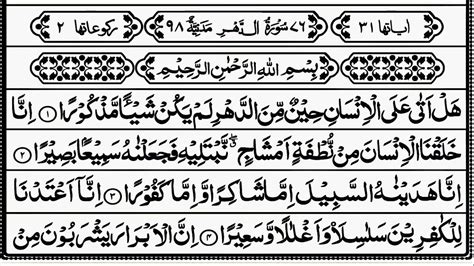 اٰیاتها ٣١ ٧٦ سُوْرَةُ الدَّهْرِ مَدَنِيَّةٌ ٩٨ رکوعاتها ٢
بِسْمِ اللهِ الرَّحْمٰنِ الرَّحِيْمِ
هَلْ اَتٰى عَلَى الْاِنْسَانِ حِيْنٌ مِّنَ الدَّهْرِ لَمْ يَكُنْ شَيْـًٔا مَّذْكُوْرًا ﴿١﴾ اِنَّا
خَلَقْنَا الْاِنْسَانَ مِنْ نُّطْفَةٍ اَمْشَاجٍ ۖ نَّبْتَلِيْهِ فَجَعَلْنٰهُ سَمِيْعًۢا بَصِيْرًا ﴿٢﴾
اِنَّا هَدَيْنٰهُ السَّبِيْلَ اِمَّا شَاكِرًا وَّاِمَّا كَفُوْرًا ﴿٣﴾ اِنَّاۤ اَعْتَدْنَا
لِلْكٰفِرِيْنَ سَلٰسِلَا۟ وَاَغْلٰلًا وَّسَعِيْرًا ﴿٤﴾ اِنَّ الْاَبْرَارَ يَشْرَبُوْنَ مِنْ